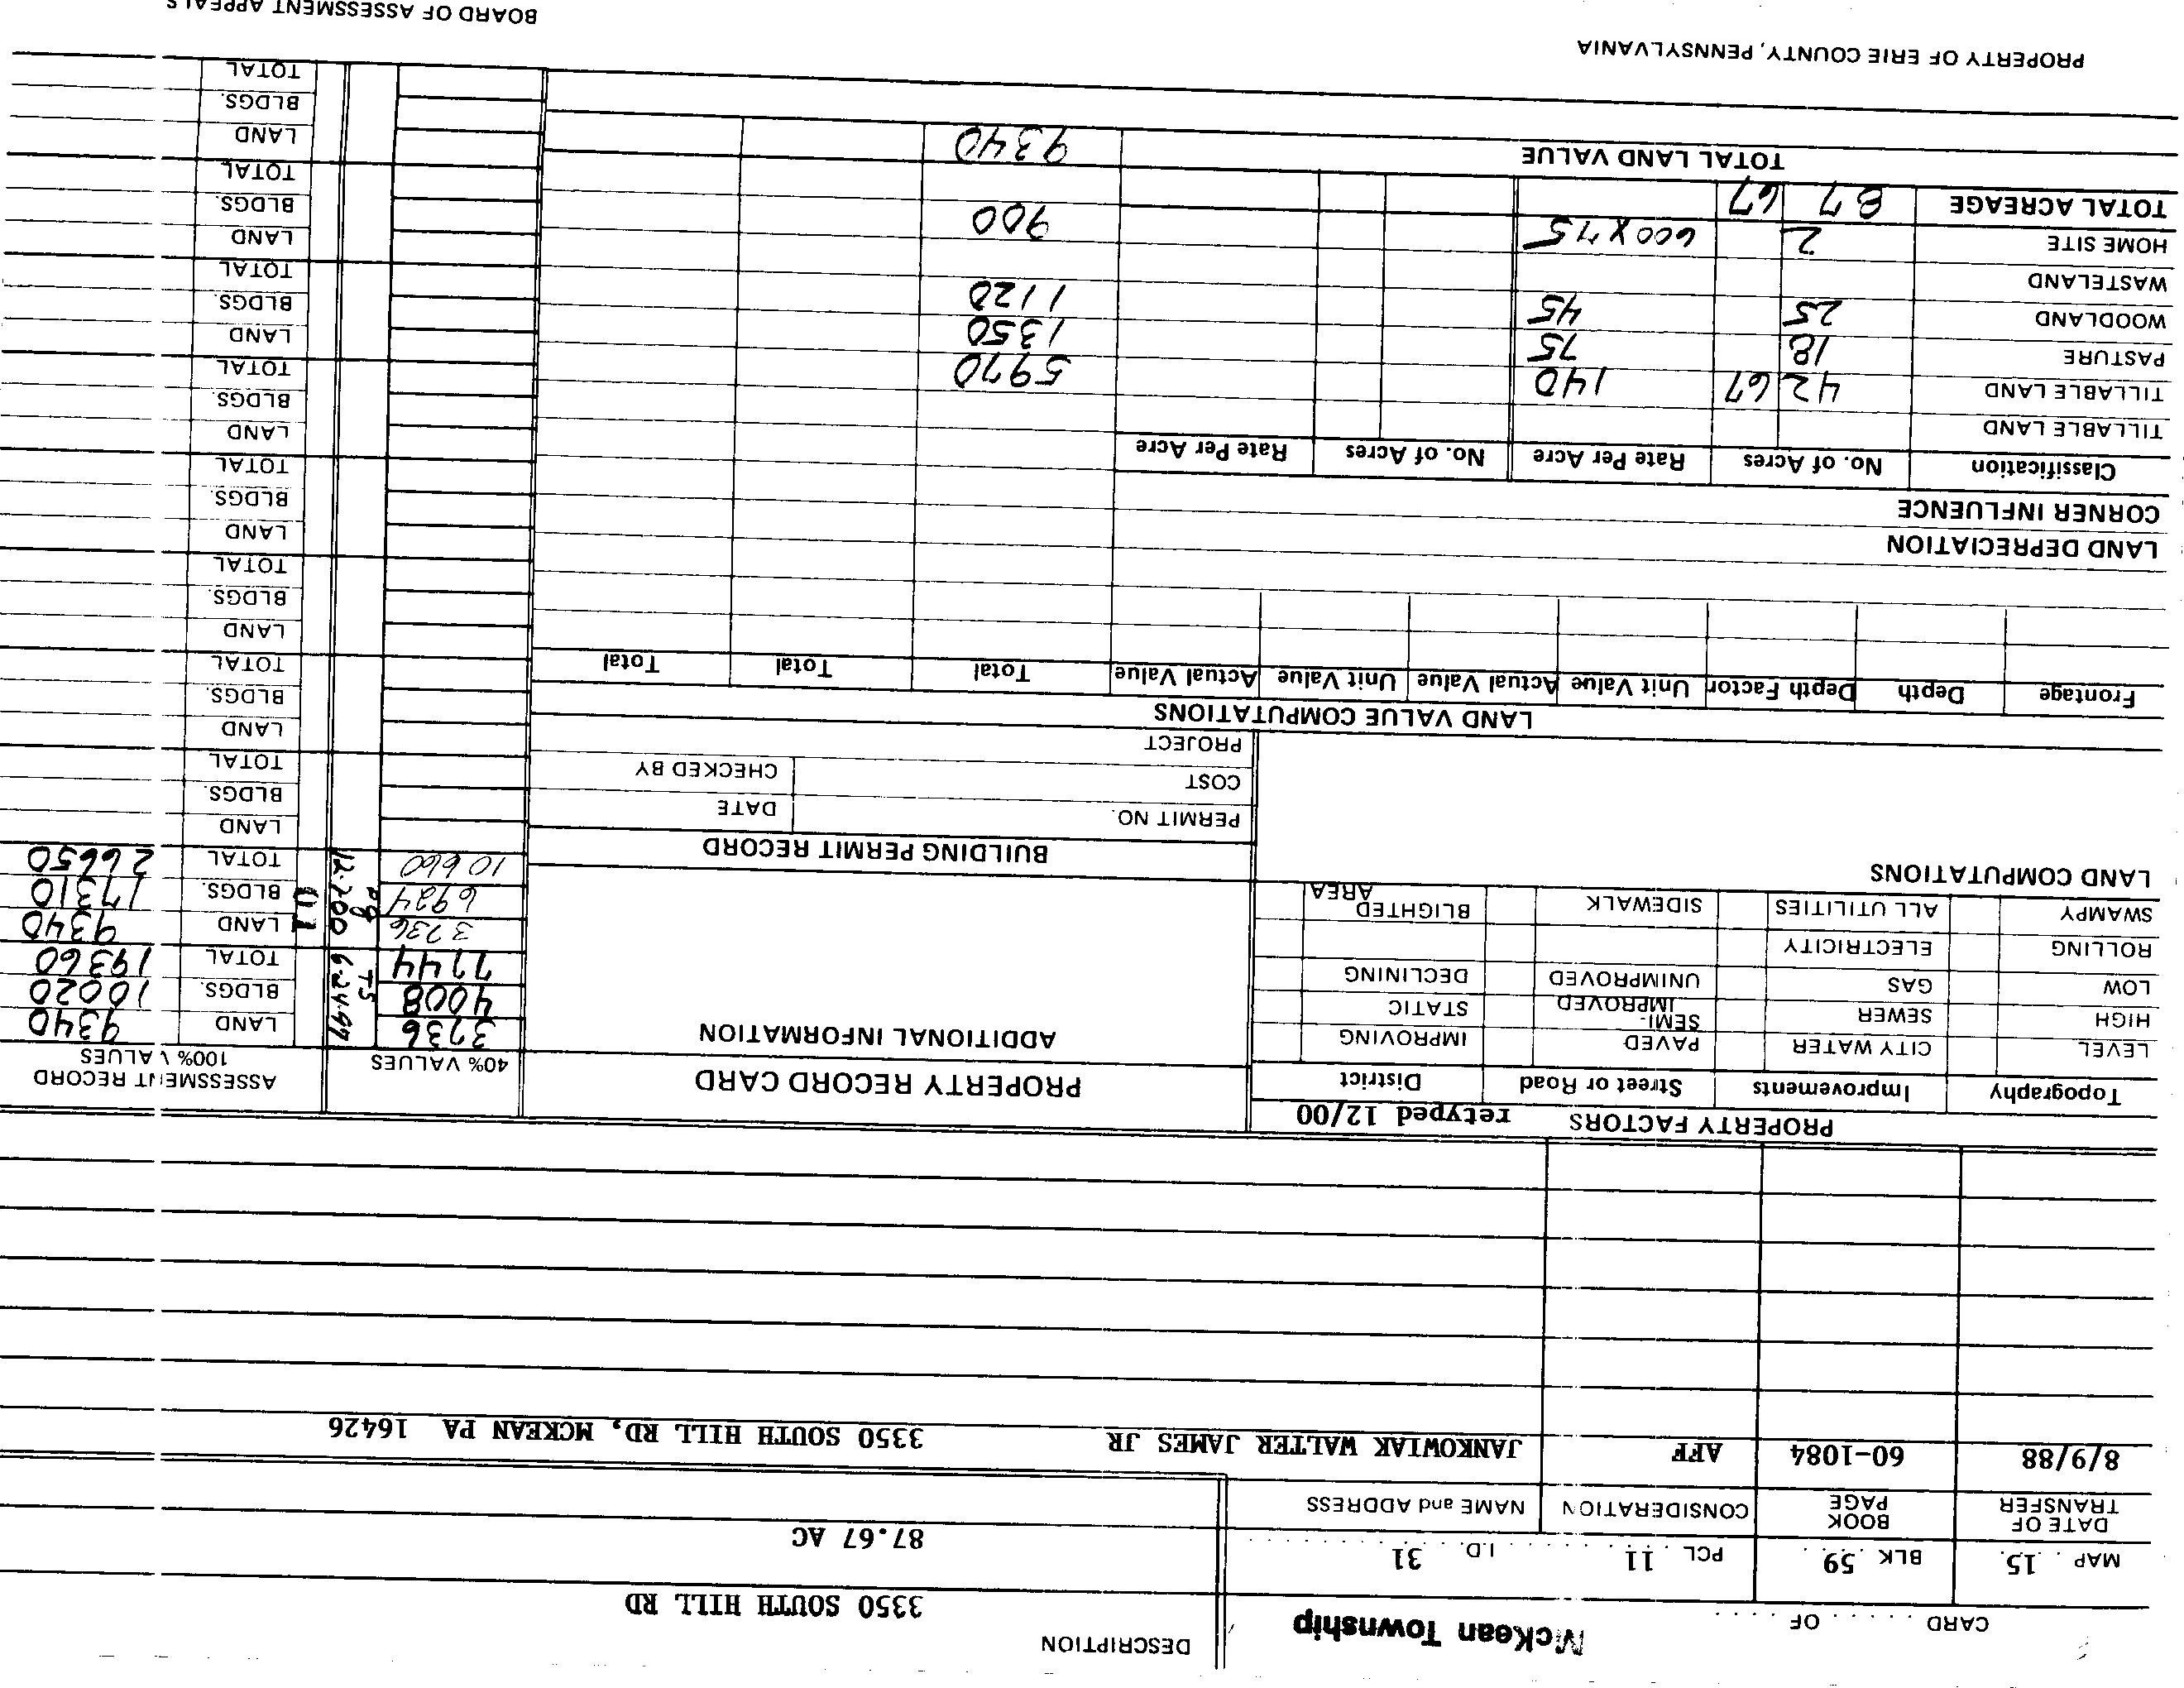 CARD . . . . . . OF . . . . McKean Township DESCRIPTION 3350 SOUTH HILL RD
MAP 15 BLK 59 PCL 11 I.D. 31 87.67 AC
DATE OF TRANSFER BOOK PAGE CONSIDERATION NAME and ADDRESS
8/9/88 60-1084 AFF JANKOWIAK WALTER JAMES JR 3350 SOUTH HILL RD, MCKEAN PA 16426
PROPERTY FACTORS retyped 12/00
Topography Improvements Street or Road District
LEVEL CITY WATER PAVED IMPROVING
HIGH SEWER SEMI-IMPROVED STATIC
LOW GAS UNIMPROVED DECLINING
ROLLING ELECTRICITY
SWAMPY ALL UTILITIES SIDEWALK BLIGHTED AREA
LAND COMPUTATIONS
PROPERTY RECORD CARD
ADDITIONAL INFORMATION
BUILDING PERMIT RECORD
PERMIT NO. DATE
COST CHECKED BY
PROJECT
LAND VALUE COMPUTATIONS
Frontage Depth Depth Factor Unit Value Actual Value Unit Value Actual Value Total Total Total
LAND DEPRECIATION
CORNER INFLUENCE
Classification No. of Acres Rate Per Acre No. of Acres Rate Per Acre
TILLABLE LAND
TILLABLE LAND 42 67 140 5970
PASTURE 18 75 1350
WOODLAND 25 45 1120
WASTELAND
HOME SITE 2 600 X 75 900
TOTAL ACREAGE 87 67
TOTAL LAND VALUE 9340
40% VALUES ASSESSMENT RECORD 100% VALUES
3736 LAND 9340
4008 TS 6-24-97 BLDGS. 10020
7744 TOTAL 19360
3736 LAND 9340
6924 pg 12-7-00 01 BLDGS. 17310
10660 TOTAL 26650
LAND
BLDGS.
TOTAL
LAND
BLDGS.
TOTAL
LAND
BLDGS.
TOTAL
LAND
BLDGS.
TOTAL
LAND
BLDGS.
TOTAL
LAND
BLDGS.
TOTAL
LAND
BLDGS.
TOTAL
LAND
BLDGS.
TOTAL
PROPERTY OF ERIE COUNTY, PENNSYLVANIA
BOARD OF ASSESSMENT APPEALS